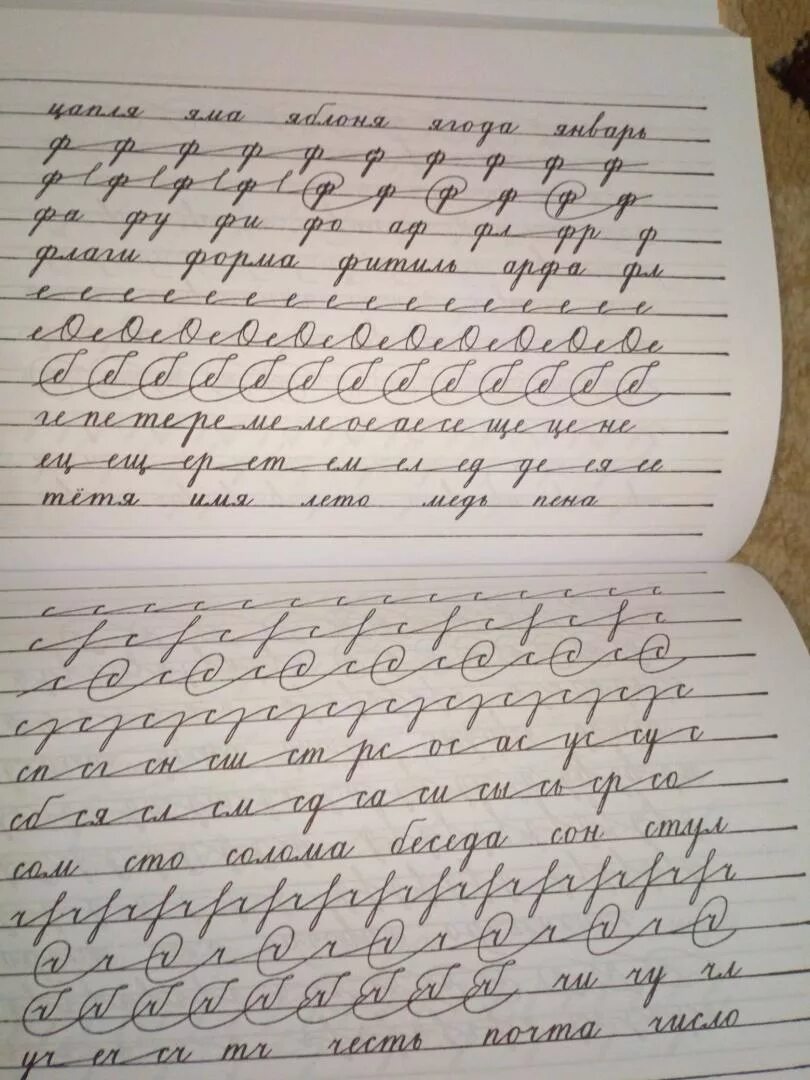 цапля яма яблоня ягода январь
ф ф ф ф ф ф ф ф ф ф
ф ф ф ф ф ф ф ф ф
фа фу фи фо аф фл фр ф
флаги форма фитиль арфа фл
е е е е е е е е е е е е е е е
ге пе те ре ме ле ое ае се ще це не
ец ещ ер ет ем ел ед де ея ее
тётя имя лето медь пена
с с с с с с с с с с с с с
сп сг сн сш ст рс ос ас ус су с
сб ся сл см сд са си сы сь ср со
сом сто солома беседа сон стул
ч ч ч ч ч ч ч ч ч ч ч ч ч
чи чу чл
уч еч сч тч честь почта число